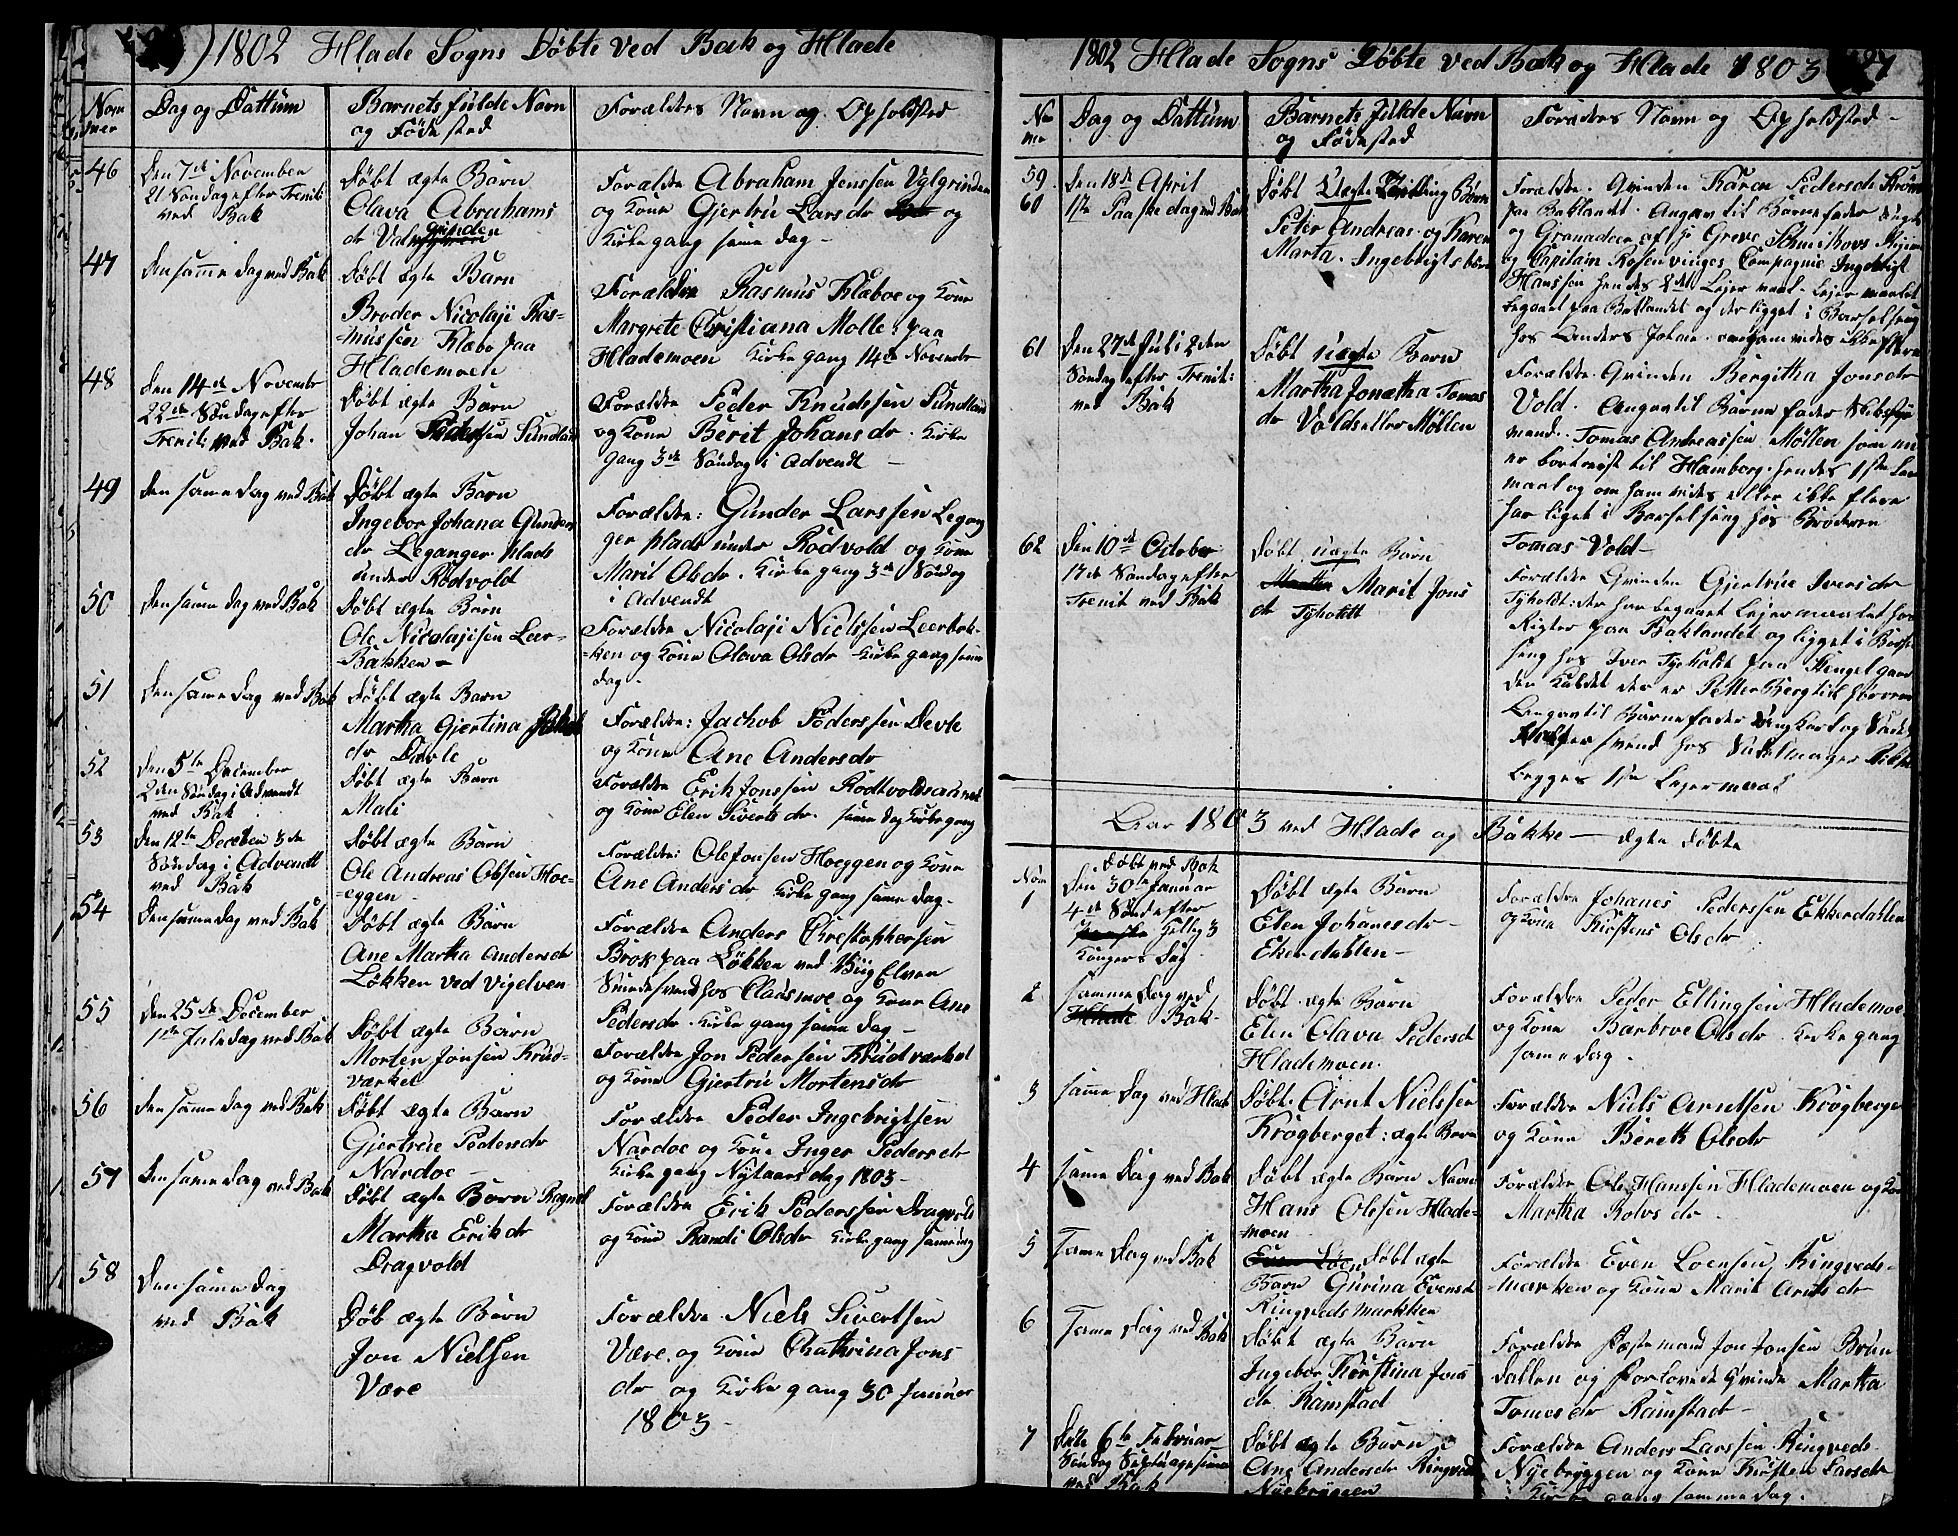 1802 Hlade Sogns Døbte ved Bak og Hlade
Nom mer
Dag og Dattum
Barnets fulde Navn
og Fødested
Forældres Navn og Opholdsted
46
Den 7de November
21 Søndag efter Trenit:
ved Bak
Døbt ægte Barn
Olava Abrahams
dr
Forældre Abraham Jenssen
og Kone Gjertrue Larsdr og
Kirkegang same dag -
47
Den samme dag ved Bak
Døbt ægte Barn
Broder Nicolaji Ras-
mussen Klæbo paa
Hlademoen
Forældre Rasmus Klæboe og Kone
Margrete Christiana Molle paa
Hlademoen Kirkegang 14de November
48
Den 14de November
22de Søndag efter
Trenit: ved Bak.
Døbt ægte Barn
Johan Pedersen Sundland
Forældre Peder Knudssen Sundland
og Kone Berit Johansdr. Kirke
gang 3de Søndag i Advendt -
49
Den same dag ved Bak
Døbt ægte Barn
Ingebor Johana Gunders
dr Leganger plads
under Rødvold
Forældre: Gunder Larssen Legan
ger plads under Rødvold og Kone
Marit Olsdr. Kirkegang 3de Søndag
i Advendt
50
Den samme dag ved Bak
Døbt ægte Barn
Ole Nicolajisen Leer-
Bakken -
Forældre Nicolaji Nielssen Leerbak-
ken og Kone Olava Olsdr Kirkegang samme
dag -
51
Den same dag ved Bak
Døbt ægte Barn
Martha Gjertina
dr Devle
Forældre: Jachob Pederssen Devle
og Kone Ane Andersdr
52
Den 5te December
2den Søndag i Advendt
ved Bak
Døbt ægte Barn
Mali
Forældre Erik Jonssen
og Kone Elen Siverts dr. samme dag Kirkegang
53
Den 12te December 3de
Søndag i Advendt
ved Bak
Døbt ægte Barn
Ole Andreas Olssen Hoe-
eggen -
Forældre: Ole Jonsen Hoeggen og Kone
Ane Anders dr Kirkegang same dag -
54
Den same dag ved Bak
Døbt ægte Barn
Ane Martha Andersdr
Løkken ved Vigelven
Forældre Anders Chrestophersen
Brok paa Løkken ved Viig Elven
hos Cladsmoe og Kone Ane
Pedersdr. Kirkegang same dag -
55
Den 25de December
1ste Juledag ved Bak
Døbt ægte Barn
Morten Jonsen Krud-
værket
Forældre Jon Pedersen Krudværket
og Kone Gjertrue Mortensdr
56
Den samme dag ved Bak
Døbt ægte Barn
Gjertrue Pedersdr
Nardoe -
Forældre Peder Ingebrigtsen
Nardoe og Kone Inger Peders dr
Kirkegang Nytaarsdag 1803 -
57
Den same dag ved Bak
Døbt ægte Barn Ragnel
Martha Erik dr
Dragvold
Forældre Erik Pederssen Dragvold
og Kone Randi Olsdr Kirkegang same dag
58
Den same dag
ved Bak
Døb ægte Barn
Jon Nielsen
Være
Forældre Niels Sivertsen
Være og Kone Chathrina Jons
dr og Kirkegang 30 Januar
1803 -
1802 Hlade Sogns Døbte ved Bak og Hlade 1803
27
No mer
Dag og Dattum
Barnets fulde Navn
og Fødested
Forældres Navn og Opholdsted -
59
60
Den 18de April
1ste Paaskedag ved Bak
Døbt Uægte Tvilling Børn
Peter Andreas og Karen
Marta. Ingebrigts børn
Forældre. Qvinden Karen Pedersdr
paa Baklandet. Angav til Barnefader
og Granadeer af Greve Schmettovs
og Capitain Rosenvinges Compagnie Ingebrigt
Hanssen hendes 2det Lejermaal. Lejermaalet
begaaet paa Baklandet og der ligget i Barselseng
hos Anders Johne
61
Den 27de Juli 2den
Søndag efter Trenit:
ved Bak
Døbt uægte Barn
Martha Jonetha Tomas
dr Volds eller Møllen
Forældre: Qvinden Bergitha Jonsdr
Vold. Angav til Barnefader
mand. Tomas Andreassen Møllen som nu
er bortrejst til Hamborg. hendes 1ste Leier
maal og om ham vides eller ikke flere
har liget i Barselseng hos Broderen
Tomas Vold -
62
Den 10de October
17de Søndag efter
Trenit ved Bak
Døbt uægte Barn
Marit Jons
dr Tyholtt
Forældre Qvinden Gjertrue Iversdr
Tyholdt: der har begaaet Lejermaalet
paa Baklandet og ligget i Barsel
seng hos Iver Tyholdt paa
den Kaldet der er Petter Berg
Angav til Barnefader
svend hos
Begges 1ste Lejermaal
Aar 1803 ved Hlade og Bakke - ægte døbte
Nom
1
Døbt ved Bak
Den 30te Januar
4de Sønd efter
Hellig 3
Kongers Dag
Døbt ægte Barn
Elen Johanesdr -
Ekerdahlen -
Forældre Johanes Pederssen Ekkerdahlen
og Kone Kirstens Olsdr
2
samme Dag ved
Bak -
Døbt ægte Barn
Elen Olava Pedersdr
Hlademoen.
Forældre Peder Ellingsen Hlademoe
og Kone Barbroe Olsdr Kirkegang
same dag.
3
samme Dag ved Hlade
Døbt. Arnt Nielssen
Krogberget: ægte Barn
Forældre Niels Arntsen Krogberget
og Kone Berett Olsdr
4
samme Dag ved Bak
Døbt ægte Barn Navn
Hans Olssen Hlade-
moen
Forældre Ole Hanssen Hlademoen og Kone
Martha Rolvs dr
5
Same Dag ved Bak
Døbt ægte
Barn Gurina Evensdr
Ringvedsmarkken
Forældre Even Loensen Ringveds-
markken og Kone Marit Arntsdr
6
Same Dag ved Bak
Døbt ægte Barn
Ingebor Kerstina Jons
dr. Ramstad
Forældre Fæstemand Jon Jonsen Brun
dallen og Forlovede Qvinde Martha
Tomesdr Ramstad -
7
Den 6te Februar
Søndag
ved Bak
Døbt ægte Barn
Ane Andersdr Ringveds
Nyebryggen
Forældre Anders Larssen Ringveds
Nyebryggen og Kone Kirsten Larsdr
Kirkegang samme dag.